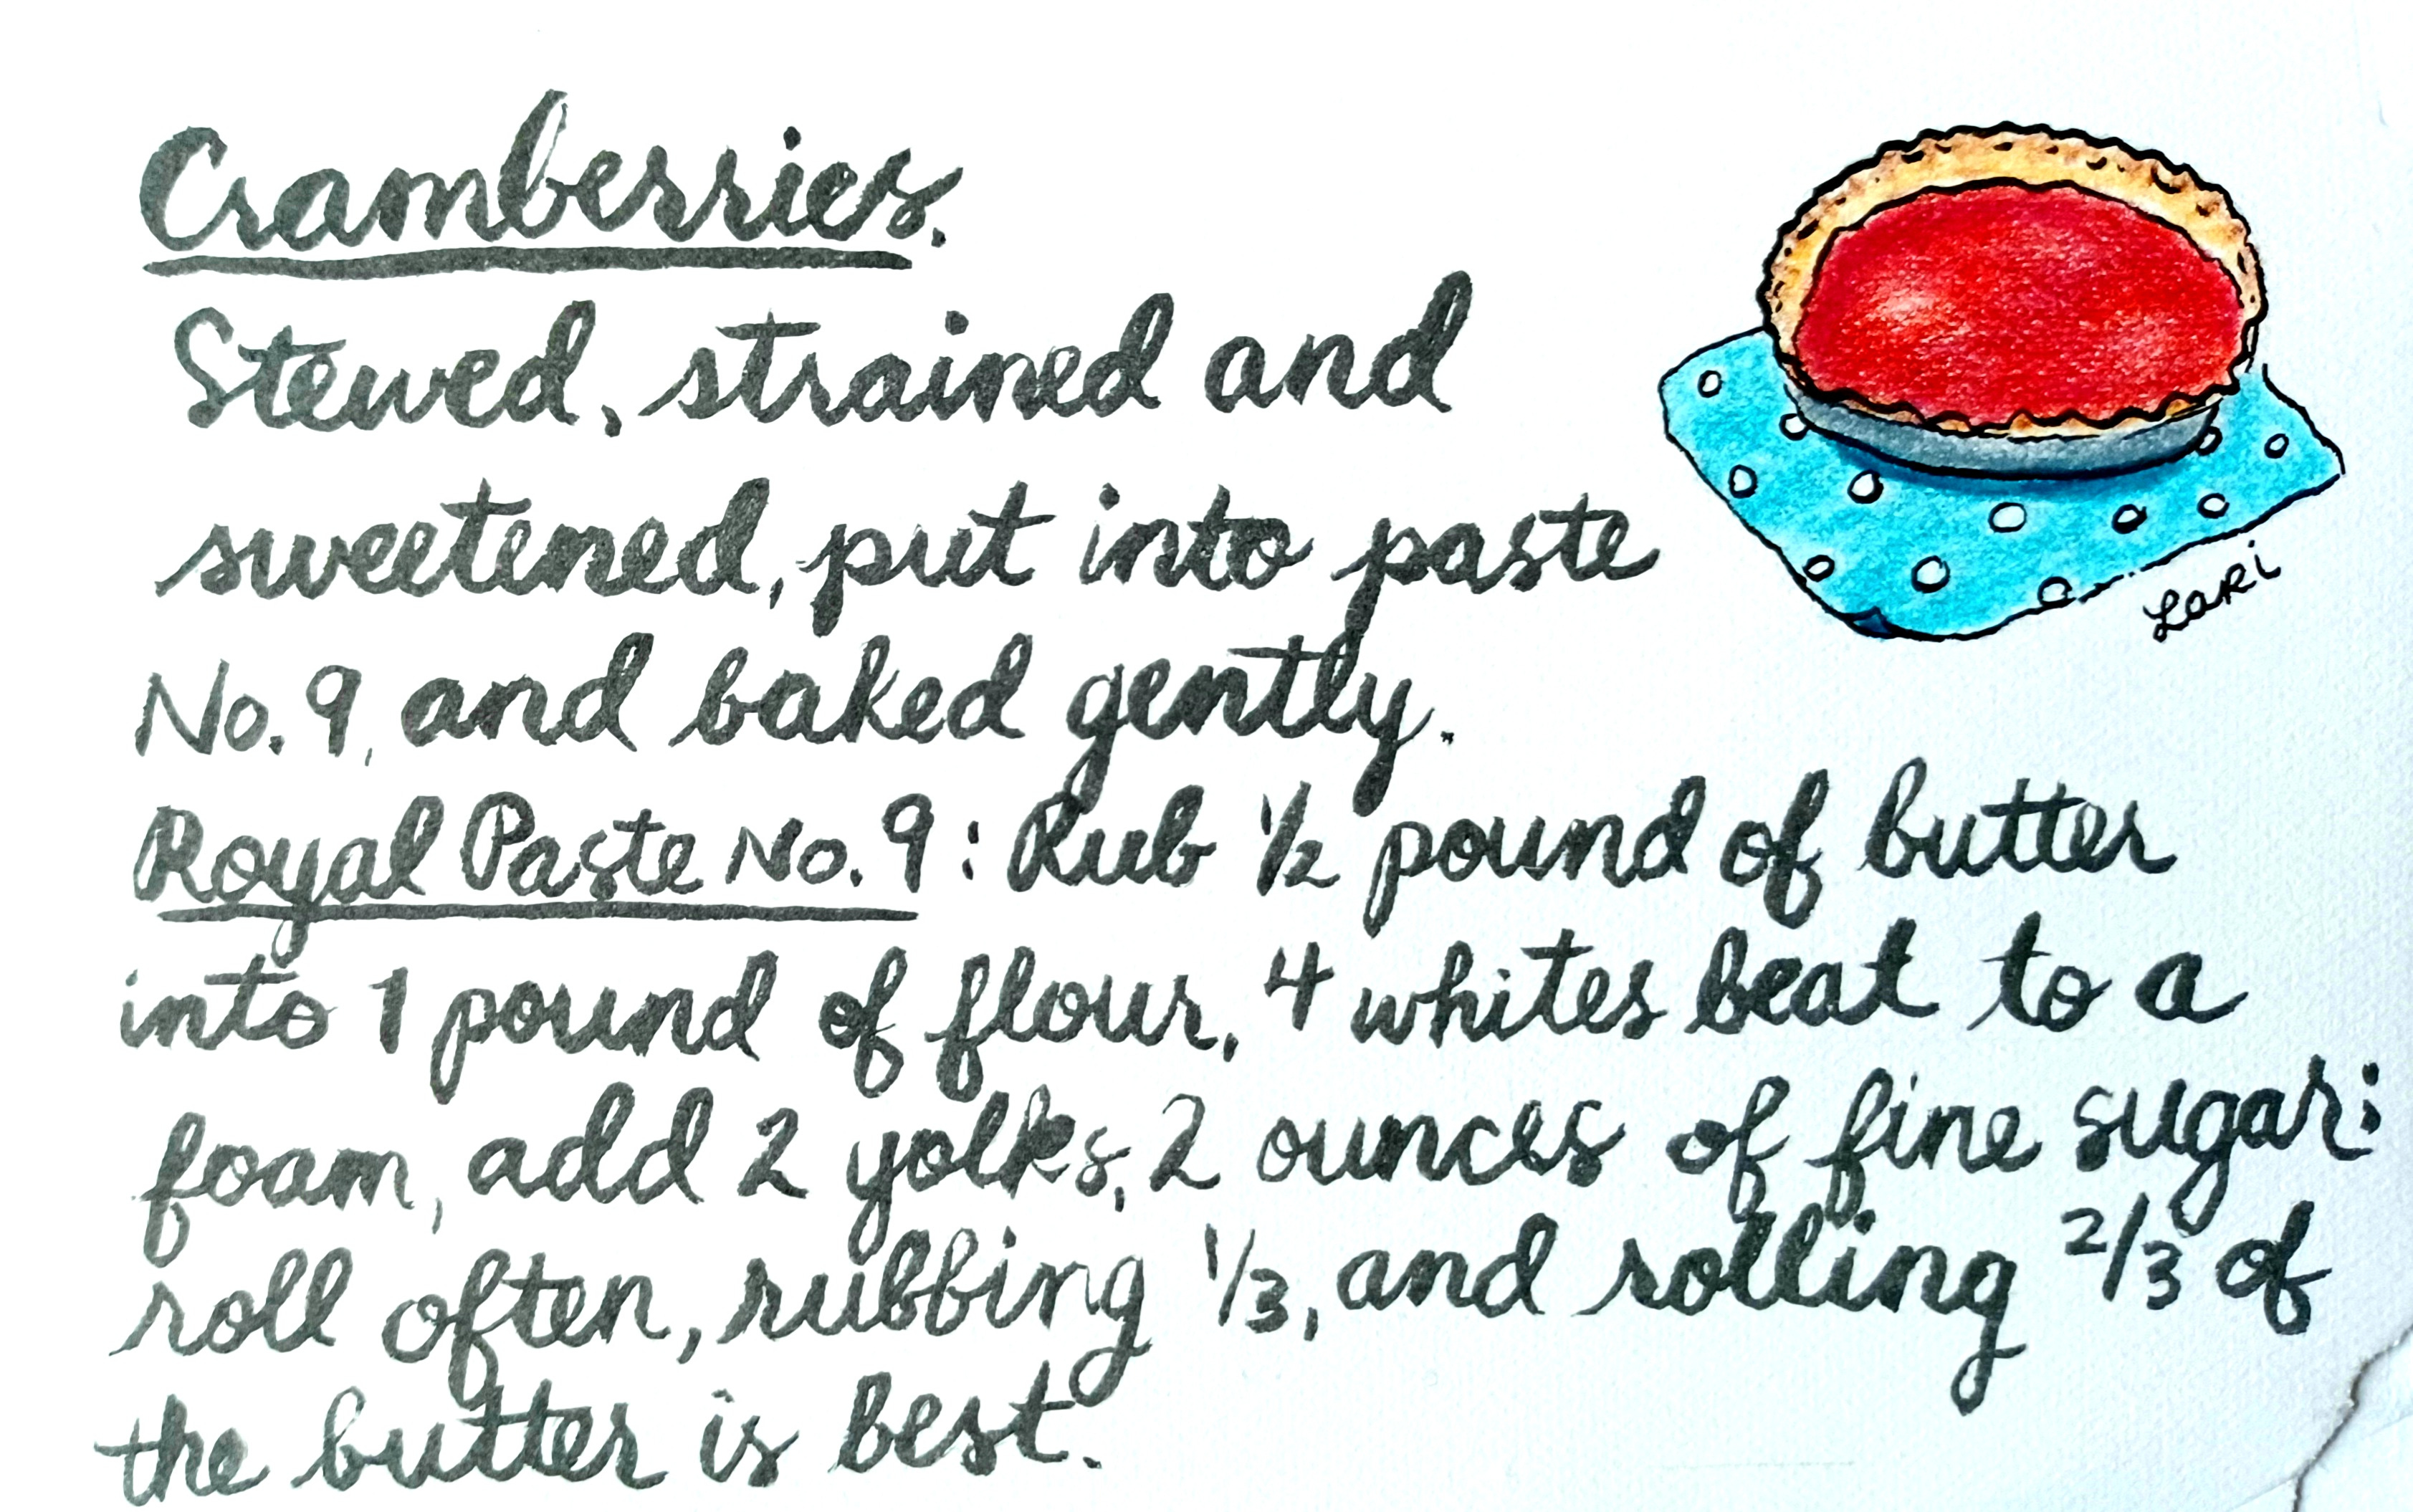 Cramberries.
Stewed, strained and
sweetened, put into paste
No. 9, and baked gently.
Lari
Royal Paste No. 9: Rub 1/2 pound of butter
into 1 pound of flour, 4 whites beat to a
foam, add 2 yolks, 2 ounces of fine sugar;
roll often, rubbing 1/3, and rolling 2/3 of
the butter is best.